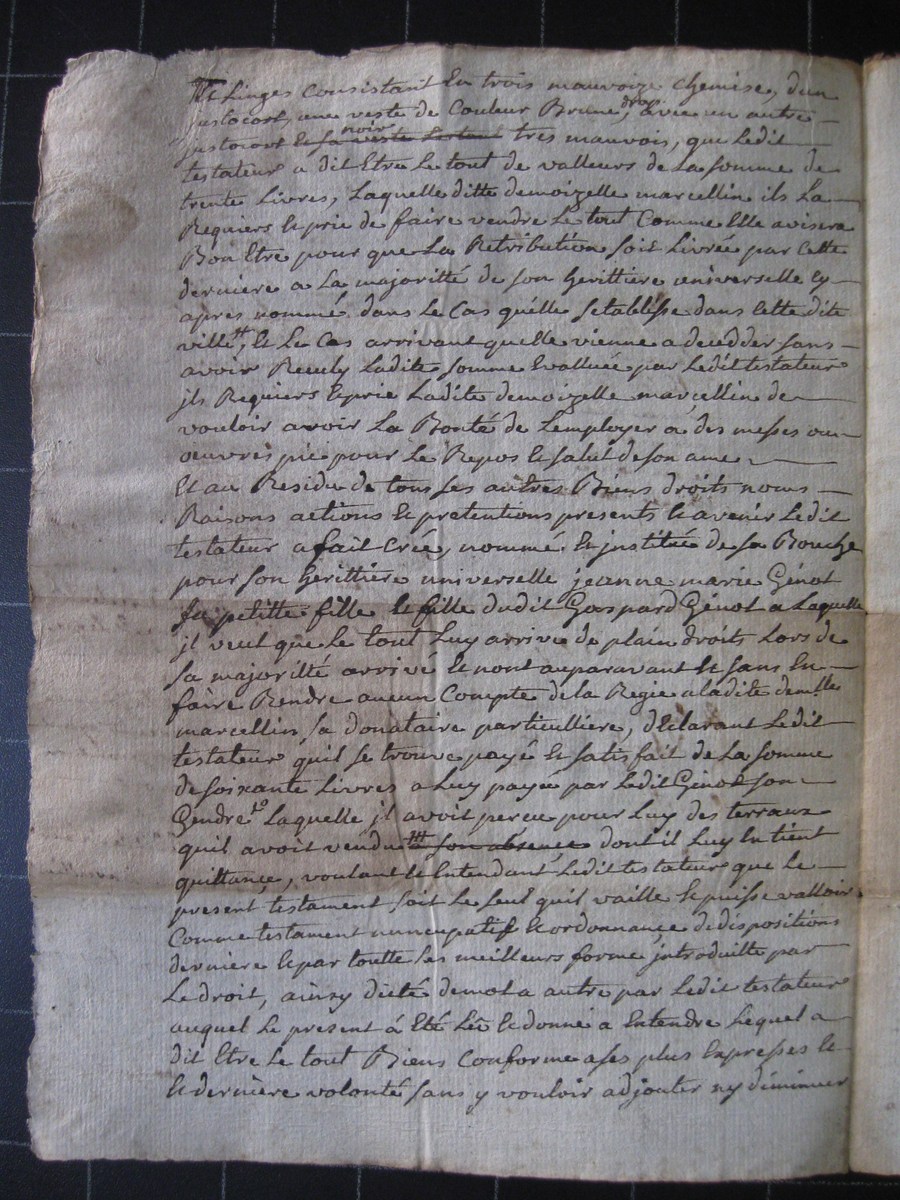 Et Linges consistant En trois mauvoize chemise, d'un
justocort, une veste de Couleur Brune, drap avec un autre
justocort Et sa veste Estant noir tres mauvois, que Ledit
testateur a dit Etre Le tout de valleurs de La somme de
trente Livres, Laquelle ditte demoizelle marcellin ils La
Requiers Et prie de faire vendre Le tout Comme Elle avisera
Bon Etre pour que La Retribution soit Livrée par Cette
derniere a La majoritté de son herittiere universelle cy
apres nommé, dans Le Cas qu'elle s'etablisse dans Cette dite
ville, Et Le Cas arrivant quelle vienne a decedder sans
avoir Reculy Ladite somme Evalluée par Ledit testateur
jls Requiers Et prie Ladite demoizelle marcellin de
vouloir avoir La Bonté de Lemployer a des messes ou
oeuvres pie pour Le Repos Et salut de son ame
Et au Residu de tous ses autres Biens droits noms
Raisons actions Et pretentions presents Et avenir Ledit
testateur a fait Crée, nommé Et institué de sa Bouche
pour son herittiere universelle jeanne marie Génot
sa petitte fille Et fille dudit Gaspard Génot a Laquelle
jl veut que Le tout Luy arrive de plain droits Lors de
sa majoritté arrivé Et nont auparavant Et sans En
faire Rendre aucun Compte de la Regie a ladite demlle
marcellin sa donataire particulliere, déclarant Ledit
testateur quil se trouve payé Et satisfait de La somme
de soixante Livres a Luy payée par Ledit Génot son
Gendre Laquelle jl avoit percu pour Luy des terraux
quil avoit vendu son absence dont il Luy En tient
quittance, voulant Et Entendant Ledit testateur que Le
present testament soit Le seul quil vaille Et puisse valloir
Comme testament nuncupatif Et ordonnance de dispositions
derniere Et par toutte Les meilleurs forme introduitte par
Le droit, ainsy dicté de mot a autre par Ledit testateur
auquel Le present á Eté Lû Et donné a Entendre Lequel a
dit Etre Le tout Biens Conforme a ses plus Expresses Et
Et derniere volonté sans y vouloir adjouter ny diminuer